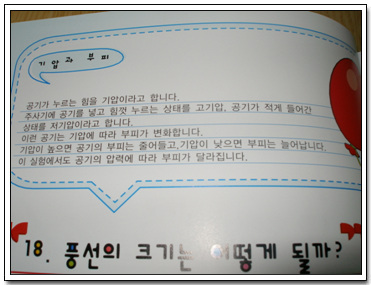 기압과 부피
공기가 누르는 힘을 기압이라고 합니다.
주사기에 공기를 넣고 힘껏 누르는 상태를 고기압, 공기가 적게 들어간
상태를 저기압이라고 합니다.
이런 공기는 기압에 따라 부피가 변화합니다.
기압이 높으면 공기의 부피는 줄어들고,기압이 낮으면 부피는 늘어납니다.
이 실험에서도 공기의 압력에 따라 부피가 달라집니다.
18. 풍선의 크기는 어떻게 될까?